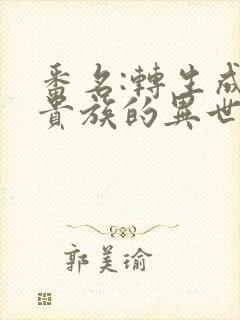 番名:轉生成
貴族的異世
郭美瑜